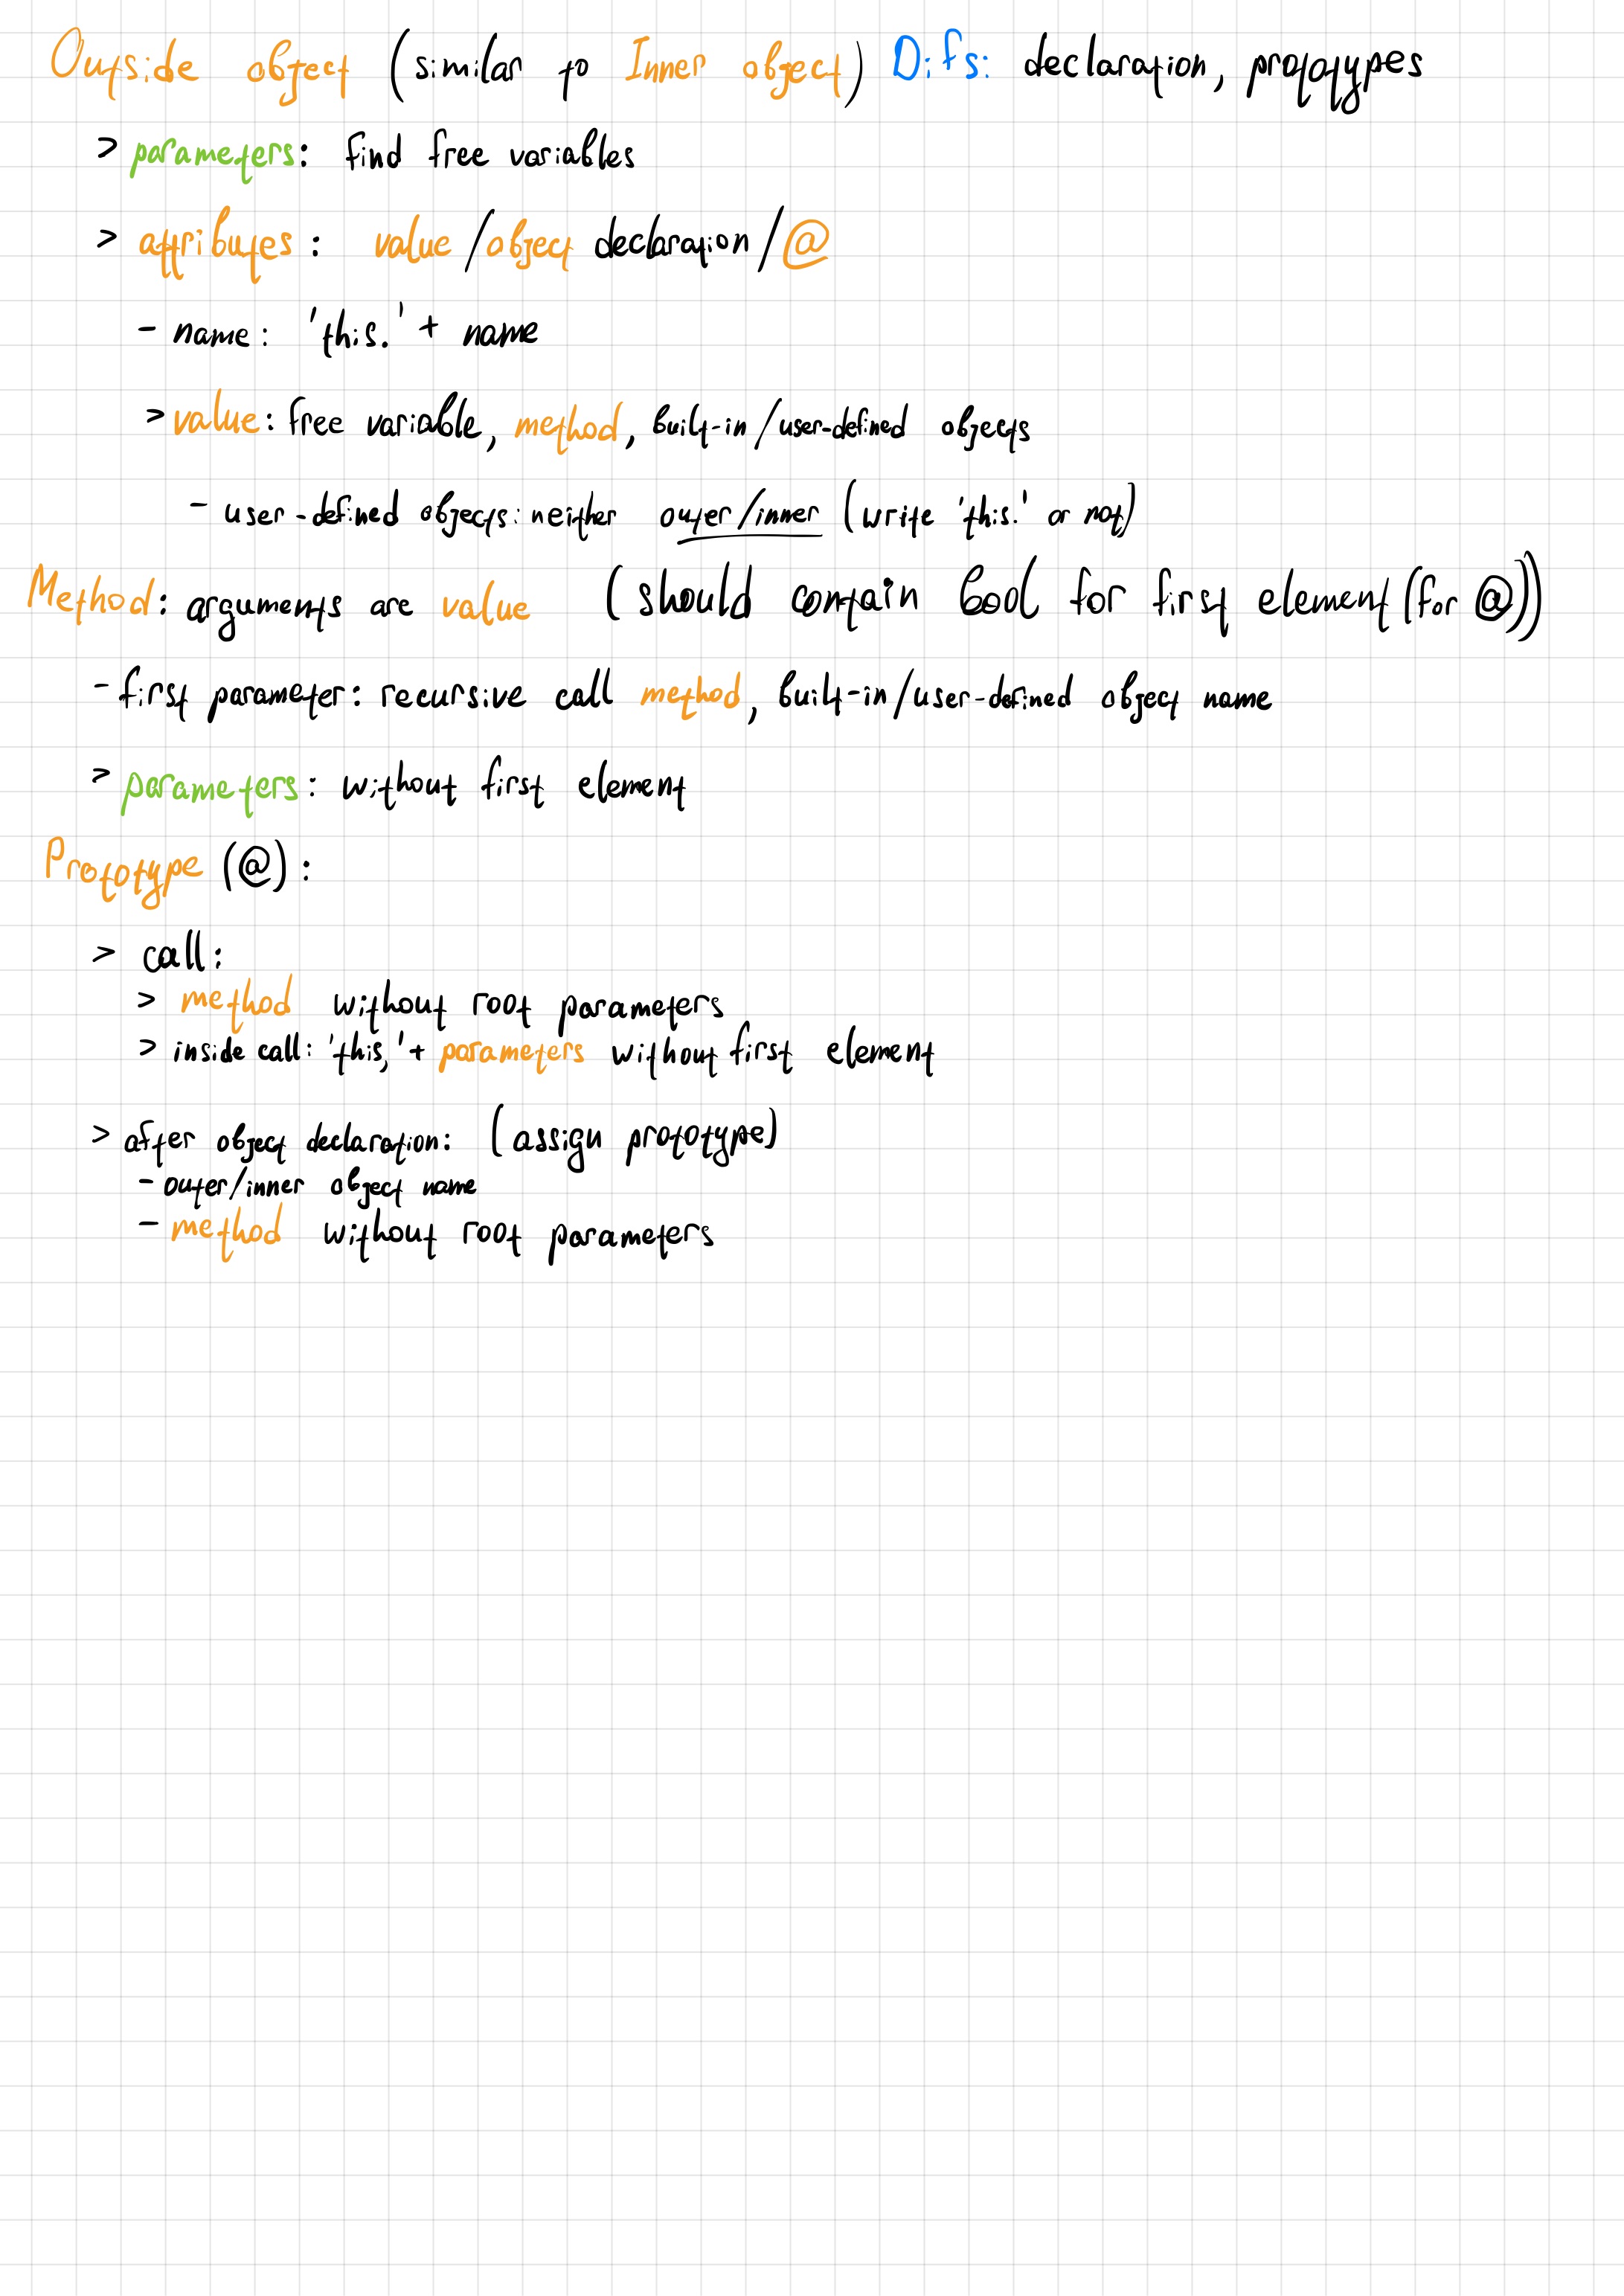 Outside object (similar to Inner object) Difs: declaration, prototypes
> parameters: find free variables
> attributes: value/object declaration/@
- name: 'this.' + name
> value: free variable, method, built-in/user-defined objects
- user-defined objects: neither outer/inner (write 'this.' or not)
Method: arguments are value (should contain bool for first element (for @))
- first parameter: recursive call method, built-in/user-defined object name
> parameters: without first element
Prototype (@):
> call:
> method without root parameters
> inside call: 'this,' + parameters without first element
> after object declaration: (assign prototype)
- outer/inner object name
- method without root parameters